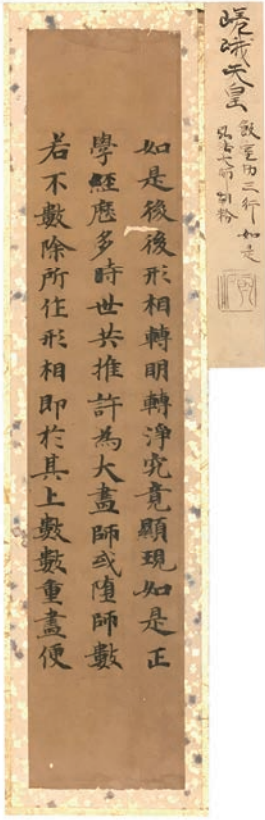 嵯峨天皇
飯室切三行 如是
如是後後形相轉明轉淨究竟顯現如是正
學經歷多時世共推許為大畫師或墮師數
若不數除所作形相即於其上數數重畫便